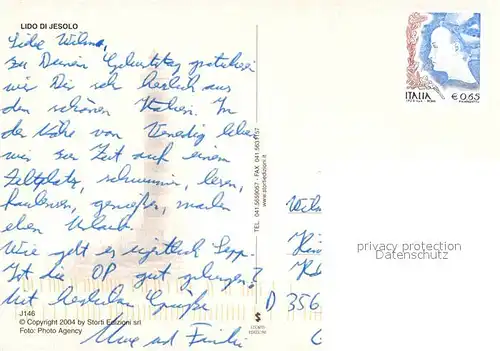 LIDO DI JESOLO
Liebe Wilma,
zu Deinem Geburtstag gratulieren
wir Dir sehr herzlich aus
dem schönen Italien. In
der Nähe von Venedig leben
wir zur Zeit auf einem
Zeltplatz, schwimmen, lesen,
faulenzen, genießen, machen
eben Urlaub.
Wie geht es eigentlich Sepp.
Ist die OP gut gelungen?
Mit herzlichen Grüße
Uwe und
J146
© Copyright 2004 by Storti Edizioni srl
Foto: Photo Agency
TEL. 041.5659057 - FAX 041.5631157
www.stortiedizioni.it
ITALIA
€ 0,65
D 356
privacy protection
Datenschutz